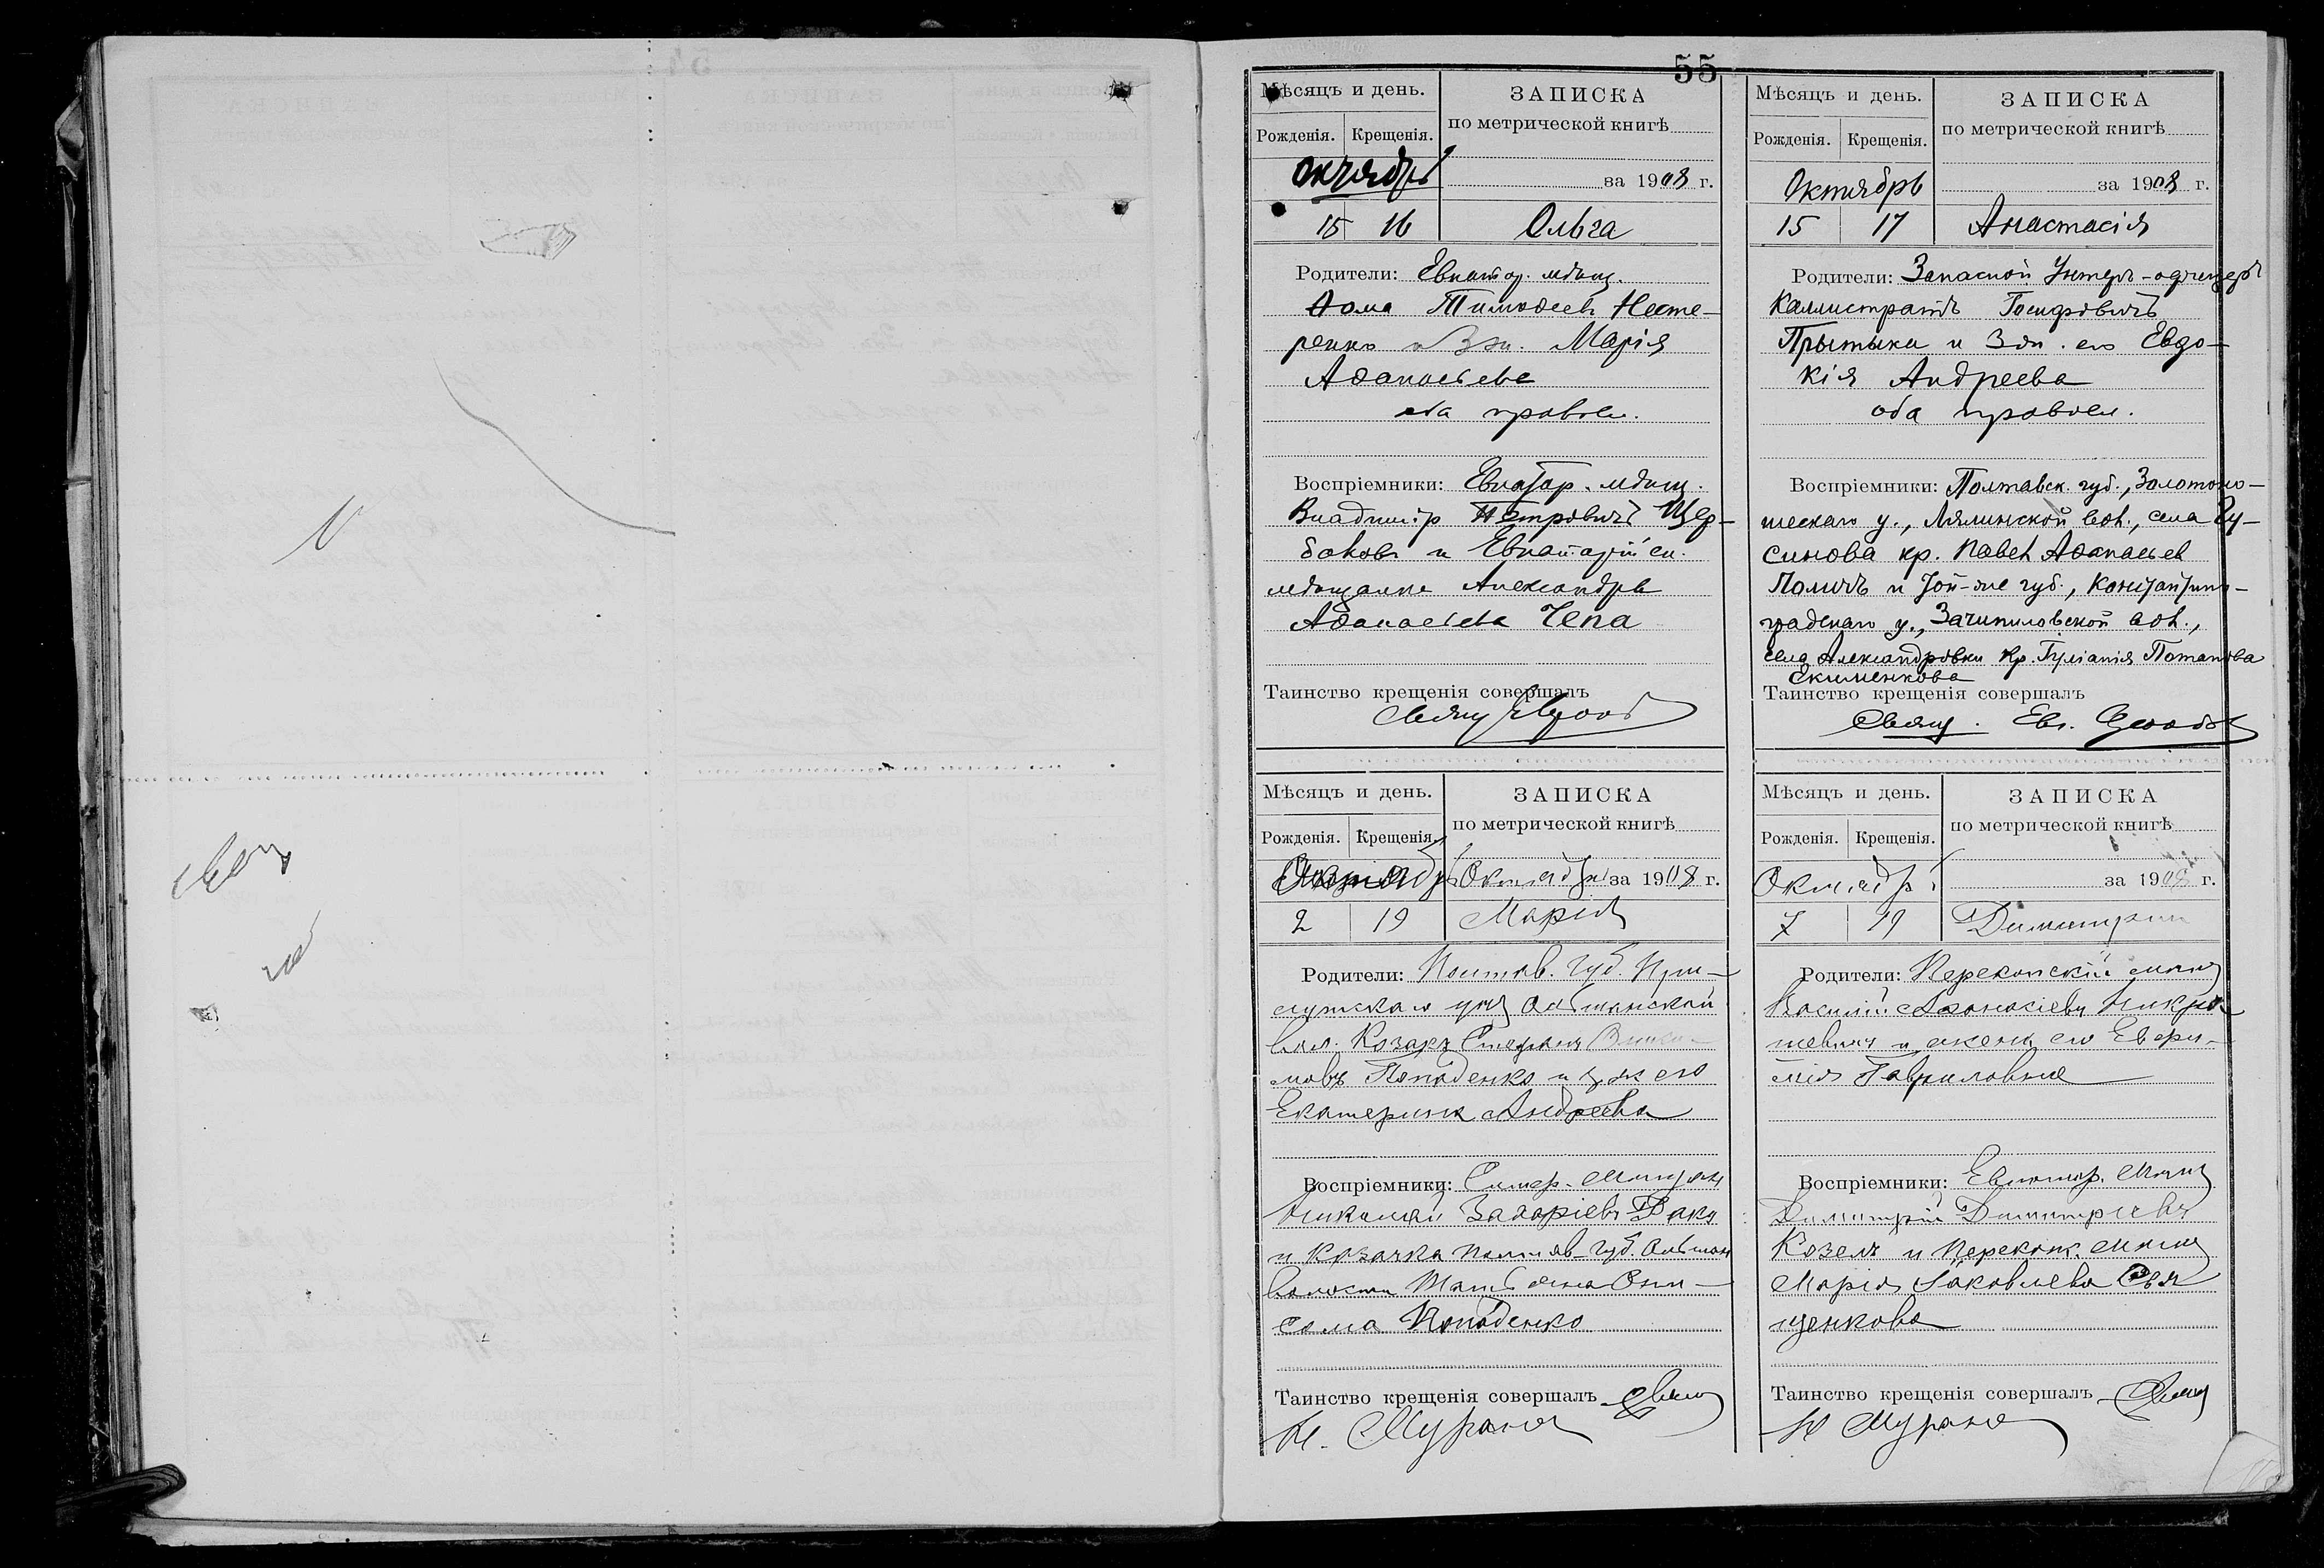 55
Мѣсяцъ и день.
ЗАПИСКА
Рожденія. Крещенія.
по метрической книгѣ
октябрь
за 1908 г.
15 16 Ольга
Родители: Евпатор. мѣщ.
Ѳома Тимоѳеев Несте-
ренко и зж. Марія
Аѳанасьева
оба правосл.
Воспріемники: Евпатор. мѣщ.
Владимір Петровичъ Щер-
баковъ и Евпаторійск.
мѣщанка Александра
Аѳанасьева Чепа
Таинство крещенія совершалъ
Свящ
Мѣсяцъ и день.
ЗАПИСКА
Рожденія. Крещенія.
по метрической книгѣ
Октябрь
за 1908 г.
15 17 Анастасія
Родители: Запасной Унтеръ-офицеръ
Каллистратъ Іосифовичъ
Прытыка и З. ж. его Евдо-
кія Андреева
оба правосл.
Воспріемники: Полтавск. губ., Золотоно-
шскаго у., Лялинской вол., села
кр. Павел Аѳанасьев
и той-же губ., Константино-
градскаго у., Зачипиловской вол.,
села Александровки кр. Іуліанія Потапова
Екименкова
Таинство крещенія совершалъ
Свящ. Евг.
Мѣсяцъ и день.
ЗАПИСКА
Рожденія. Крещенія.
по метрической книгѣ
Октябрь Октября за 1908 г.
2 19 Марія
Родители: Полтав. Губ. При-
лукскаго уѣз Ольшанской
вол. Козакъ Стефанъ
мовъ Попаденко и з. ж его
Екатерина Андреева
Воспріемники: Симф. мѣщан
Николай Захаріевъ
и Козачка Полтав. Губ. Ольшан
волости Татьяна Они-
сима Попаденко
Таинство крещенія совершалъ Свящ
Н. Мурана
Мѣсяцъ и день.
ЗАПИСКА
Рожденія. Крещенія.
по метрической книгѣ
Октябрь
за 1908 г.
7 19 Димитрій
Родители: Перекопскій мѣщ
Василій Аѳанасіевъ Никра
шевичъ и жена его Евфи-
мія Гавриловна
Воспріемники: Евпатор. мѣщ
Димитрій Димитріевъ
Козелъ и Перекоп. мѣщ
Марія Іаковлева Свя
щенкова
Таинство крещенія совершалъ Свящ
Н Мурана